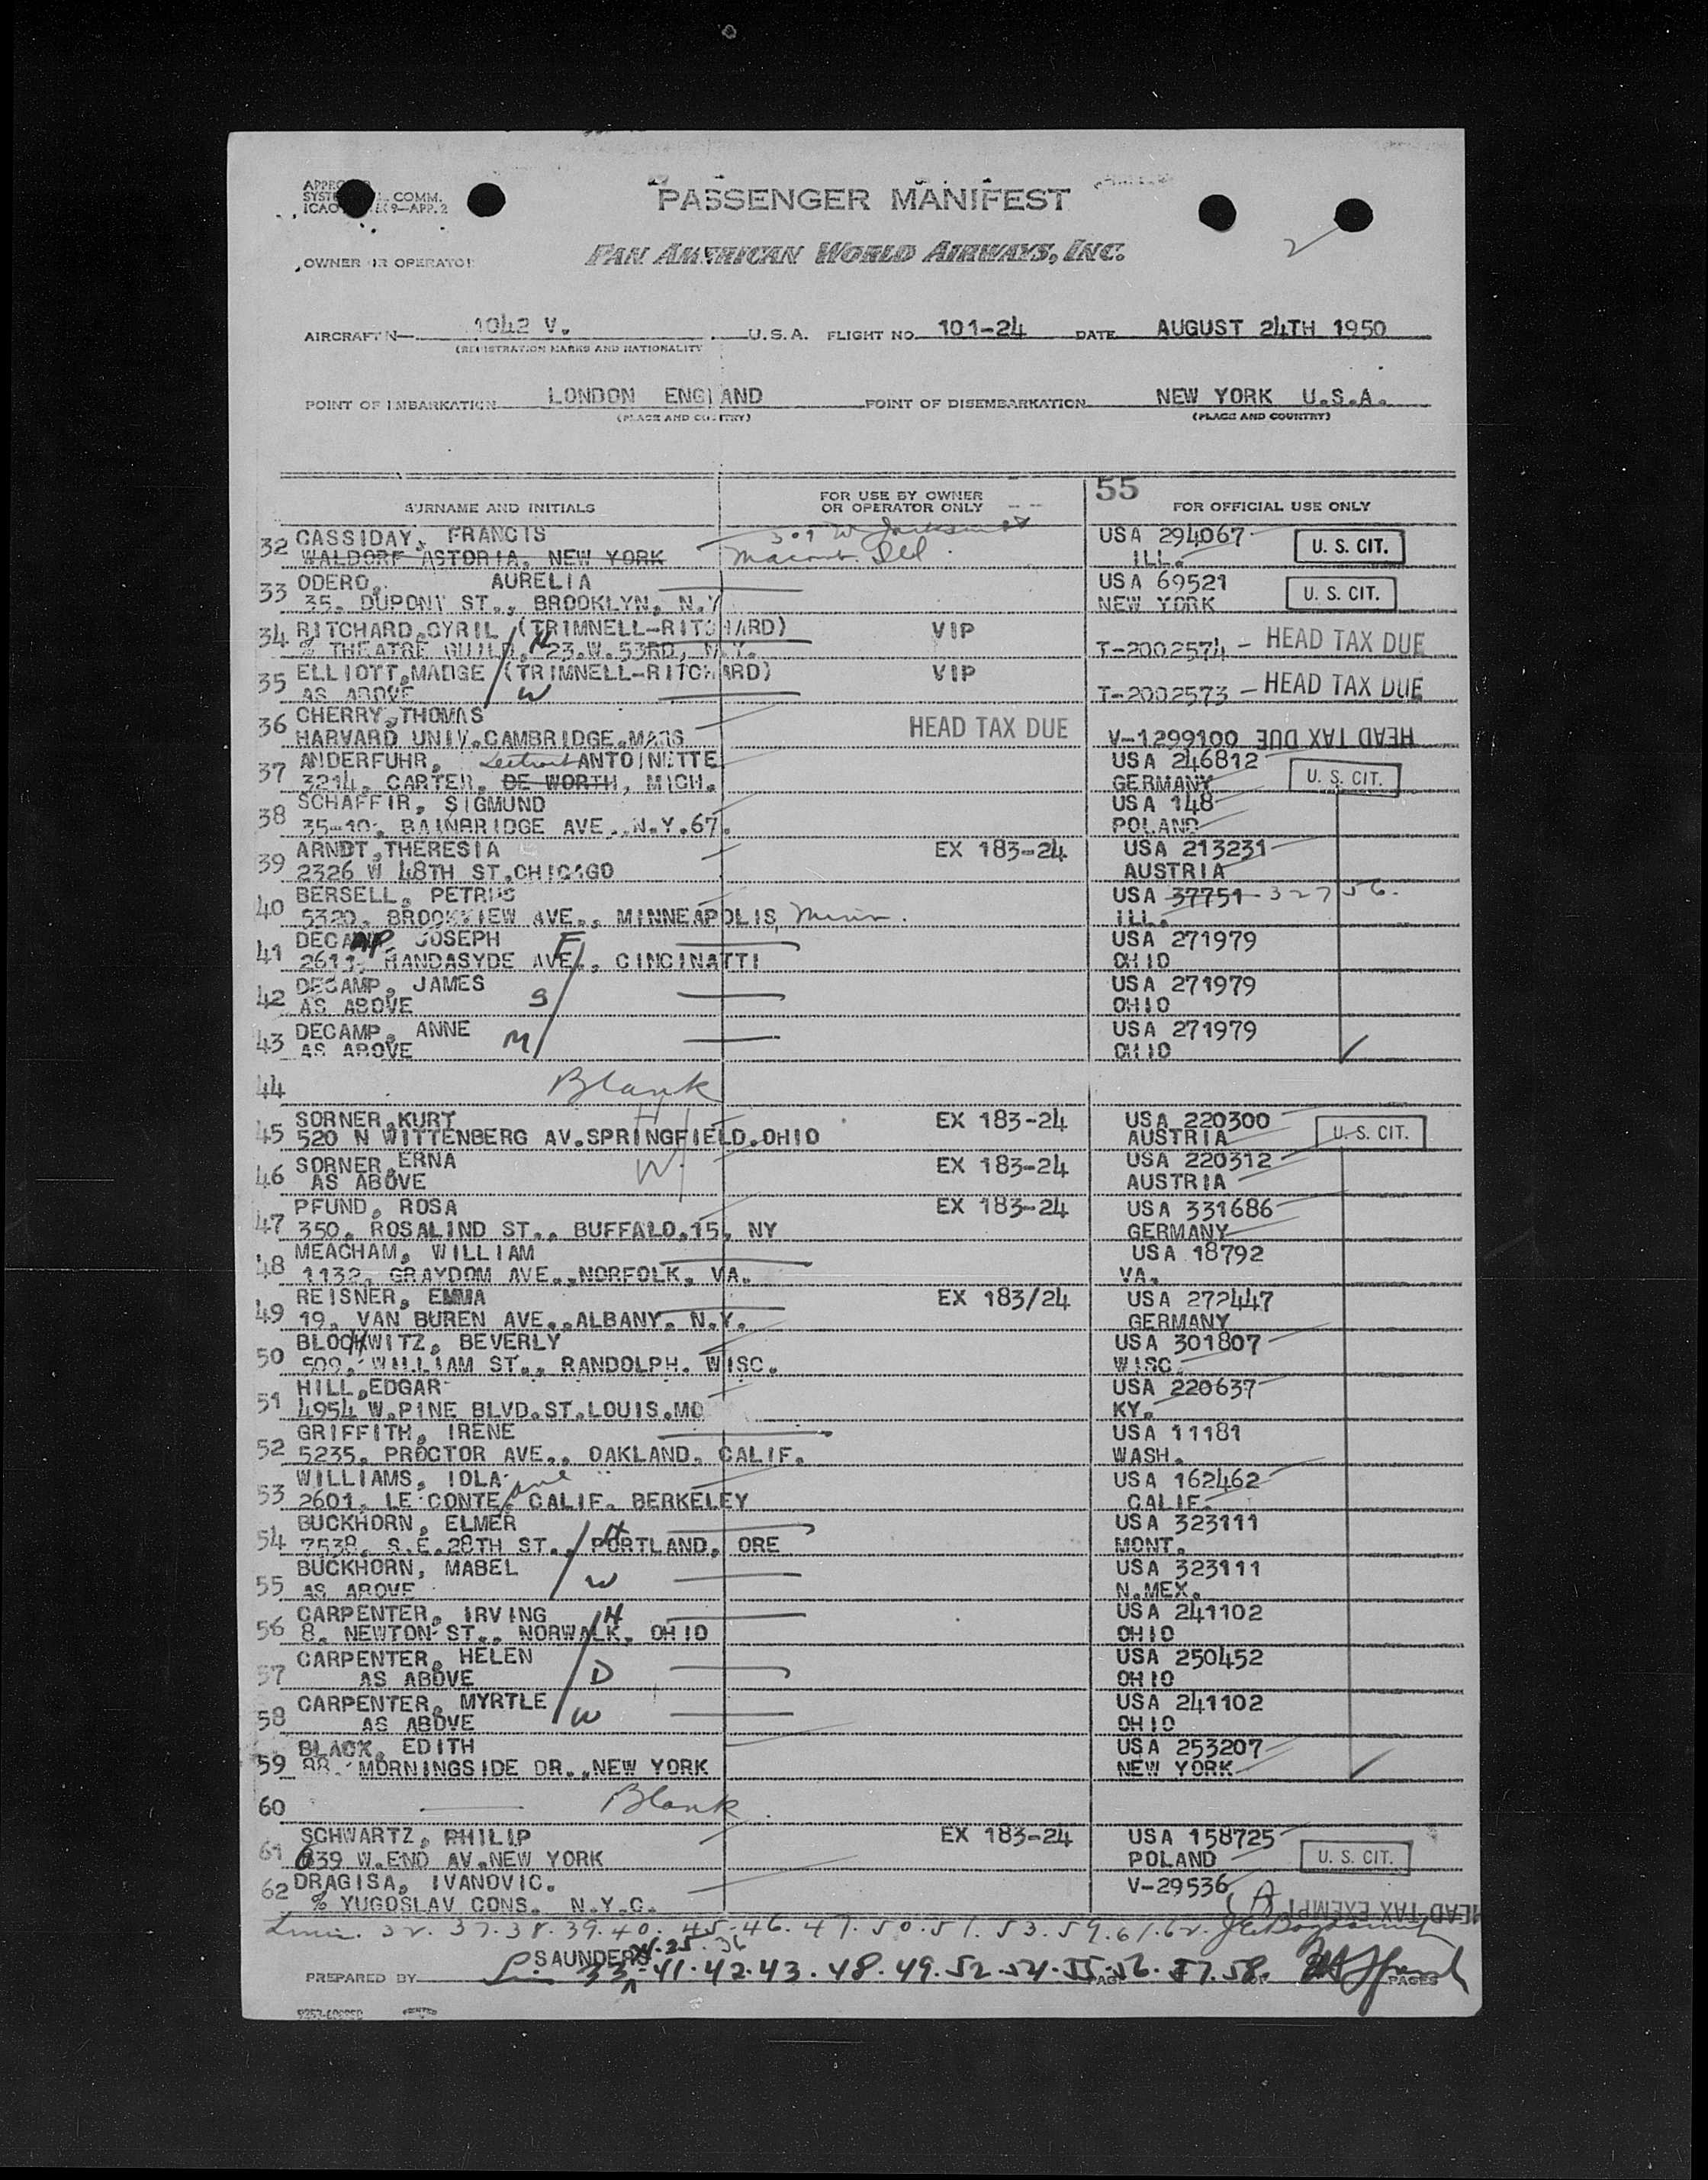 PASSENGER MANIFEST
COMM.
9—APP. 2
OWNER OR OPERATOR
PAN AMERICAN WORLD AIRWAYS, INC.
2
AIRCRAFT N— 1042 V. U.S.A. FLIGHT NO. 101-24 DATE AUGUST 24TH 1950
(REGISTRATION MARKS AND NATIONALITY
POINT OF EMBARKATION LONDON ENGLAND POINT OF DISEMBARKATION NEW YORK U.S.A.
(PLACE AND COUNTRY) (PLACE AND COUNTRY)
55
SURNAME AND INITIALS FOR USE BY OWNER OR OPERATOR ONLY FOR OFFICIAL USE ONLY
32 CASSIDAY, FRANCIS 309 W Jackson USA 294067 U. S. CIT.
WALDORF ASTORIA, NEW YORK Macomb. Ill. ILL.
33 ODERO, AURELIA USA 69521 U. S. CIT.
35, DUPONT ST., BROOKLYN, N.Y NEW YORK
34 RITCHARD,CYRIL (TRIMNELL-RITCHARD) VIP
% THEATRE GUILD, H 23.W.53RD, N.Y. T-2002574 - HEAD TAX DUE
35 ELLIOTT,MADGE (TRIMNELL-RITCHARD) VIP
AS ABOVE W T-2002573 - HEAD TAX DUE
36 CHERRY,THOMAS HEAD TAX DUE
HARVARD UNIV.CAMBRIDGE.MASS V-1299100 HEAD TAX DUE
37 ANDERFUHR, Detroit ANTOINETTE USA 246812
3214, CARTER, DE WORTH, MICH. GERMANY U. S. CIT.
38 SCHAFFIR, SIGMUND USA 148
35-10, BAINBRIDGE AVE., N.Y.67. POLAND
39 ARNDT,THERESIA EX 183-24 USA 213231
2326 W 48TH ST.CHICAGO AUSTRIA
40 BERSELL, PETRUS USA 37751 - 32756.
5320, BROOKVIEW AVE., MINNEAPOLIS, Minn. ILL.
41 DECAMP, JOSEPH F USA 271979
2611, HANDASYDE AVE., CINCINATTI OHIO
42 DECAMP, JAMES S USA 271979
AS ABOVE OHIO
43 DECAMP, ANNE M USA 271979
AS ABOVE OHIO
44 Blank
45 SORNER,KURT H EX 183-24 USA 220300 U. S. CIT.
520 N WITTENBERG AV.SPRINGFIELD.OHIO AUSTRIA
46 SORNER,ERNA W EX 183-24 USA 220312
AS ABOVE AUSTRIA
47 PFUND, ROSA EX 183-24 USA 331686
350, ROSALIND ST., BUFFALO,15, NY GERMANY
48 MEACHAM, WILLIAM USA 18792
1132, GRAYDOM AVE.,NORFOLK, VA. VA.
49 REISNER, EMMA EX 183/24 USA 272447
19, VAN BUREN AVE.,ALBANY, N.Y. GERMANY
50 BLOCHWITZ, BEVERLY USA 301807
509, WILLIAM ST., RANDOLPH. WISC. WISC.
51 HILL,EDGAR USA 220637
4954 W.PINE BLVD.ST.LOUIS.MO KY.
52 GRIFFITH, IRENE USA 11181
5235, PROCTOR AVE., OAKLAND, CALIF. WASH.
53 WILLIAMS, IOLA USA 162462
2601, LE CONTE, ave CALIF. BERKELEY CALIF.
54 BUCKHORN, ELMER H USA 323111
7538, S.E.28TH ST., PORTLAND, ORE MONT.
55 BUCKHORN, MABEL USA 323111
AS ABOVE W N.MEX.
56 CARPENTER, IRVING H USA 241102
8, NEWTON ST., NORWALK, OHIO OHIO
57 CARPENTER, HELEN USA 250452
AS ABOVE D OHIO
58 CARPENTER, MYRTLE USA 241102
AS ABOVE W OHIO
59 BLACK, EDITH USA 253207
88, MORNINGSIDE DR.,NEW YORK NEW YORK
60 Blank
61 SCHWARTZ, PHILIP EX 183-24 USA 158725
639 W.END AV.NEW YORK POLAND U. S. CIT.
62 DRAGISA, IVANOVIC. V-29536
% YUGOSLAV CONS. N.Y.C. HEAD TAX EXEMPT
32. 37. 38. 39. 40. 45. 46. 47. 50. 51. 53. 59. 61. 62.
SAUNDERS
PREPARED BY 33 34.35.36 41. 42. 43. 48. 49. 52. 54. 55. 56. 57. 58. PAGES